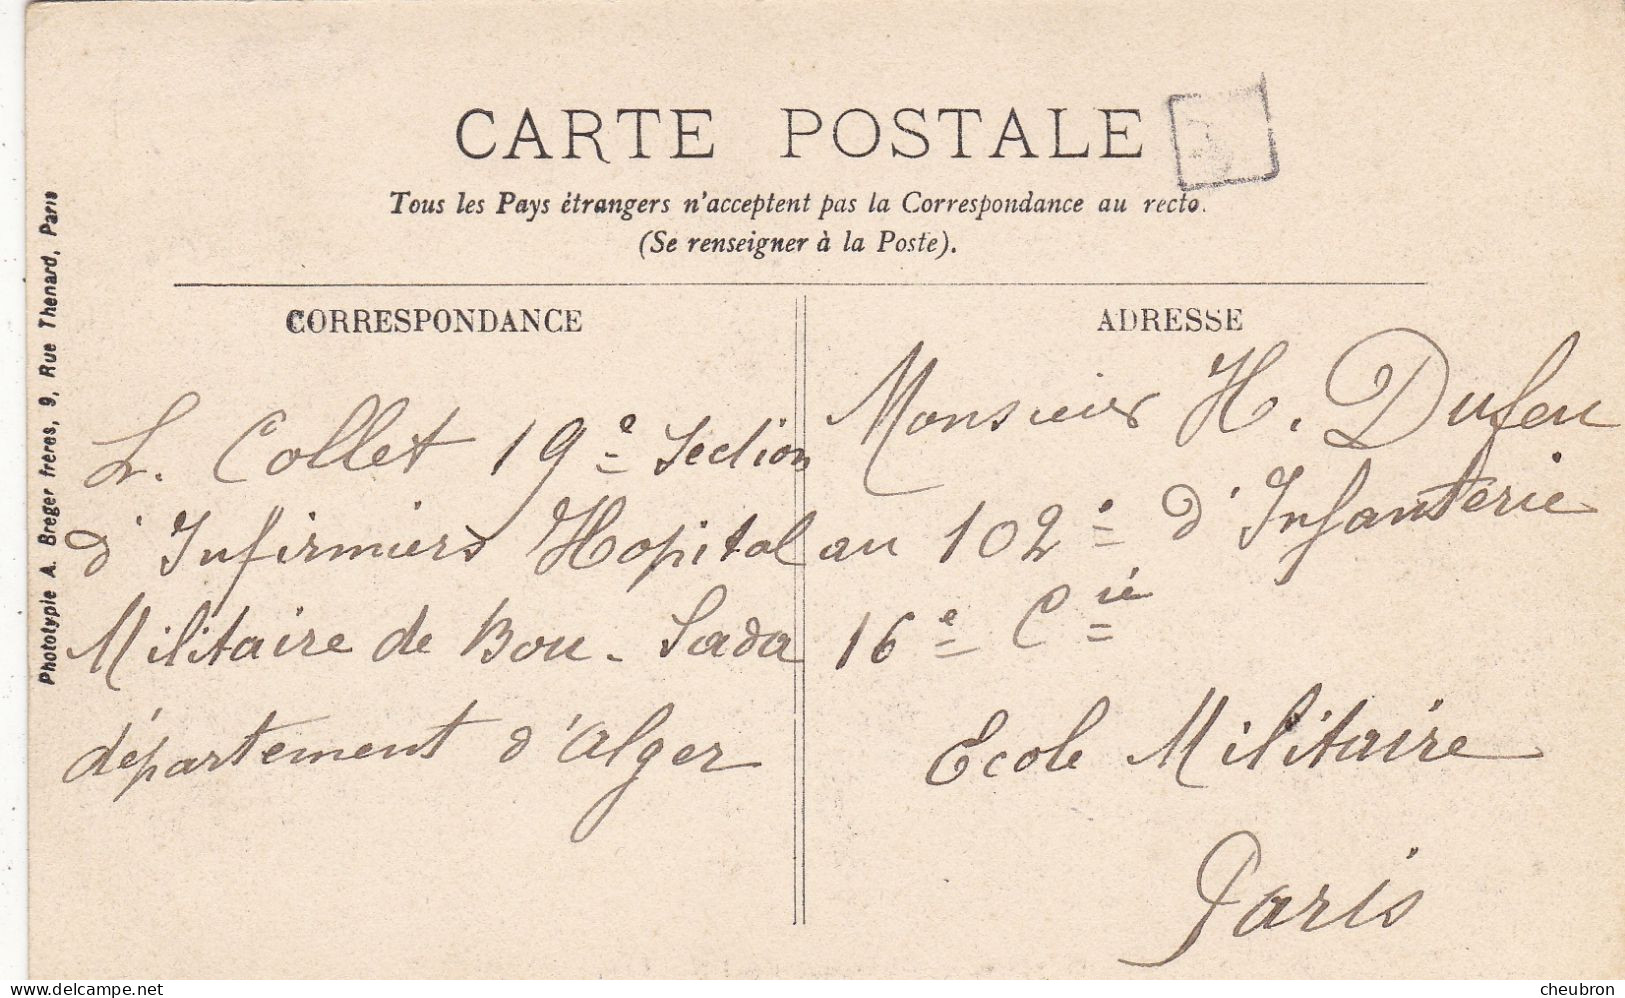 CARTE POSTALE
Tous les Pays étrangers n'acceptent pas la Correspondance au recto.
(Se renseigner à la Poste).
Phototypie A. Breger frères, 9, Rue Thenard, Paris
CORRESPONDANCE
L. Collet 19e Section
d'Infirmiers Hopital
Militaire de Bou-Sada
département d'Alger
ADRESSE
Monsieur H. Dufeu
au 102e d'Infanterie
16e Cie
Ecole Militaire
Paris
www.delcampe.net
cheubron